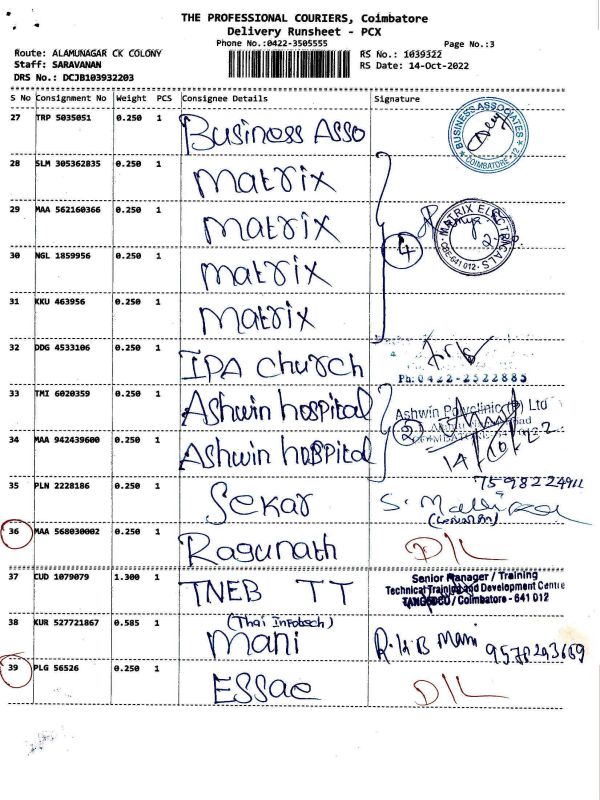 THE PROFESSIONAL COURIERS, Coimbatore
Delivery Runsheet - PCX
Phone No.:0422-3505555 Page No.:3
Route: ALAMUNAGAR CK COLONY RS No.: 1039322
Staff: SARAVANAN RS Date: 14-Oct-2022
DRS No.: DCJB103932203
S No Consignment No Weight PCS Consignee Details Signature
27 TRP 5035051 0.250 1 Business Asso BUSINESS ASSOCIATES COIMBATORE - 12
28 SLM 305362835 0.250 1 Matrix
29 MAA 562160366 0.250 1 Matrix 4 MATRIX ELECTRICALS CBE-641 012
30 NGL 1859956 0.250 1 Matrix
31 KKU 463956 0.250 1 Matrix
32 DDG 4533106 0.250 1 IPA church Ph: 0422-2522885
33 TMI 6020359 0.250 1 Ashwin hospital Ashwin Polyclinic (P) Ltd
34 MAA 942439600 0.250 1 Ashwin hospital 2 14/10/22
35 PLN 2228186 0.250 1 Sekar
36 MAA 568030002 0.250 1 Ragunath D/L
37 CUD 1079079 1.300 1 TNEB TT Senior Manager / Training
Technical Training and Development Centre
TANGEDCO / Coimbatore - 641 012
38 KUR 527721867 0.585 1 (Thai Infotech)
Mani Mani
39 PLG 56526 0.250 1 ESSae D/L